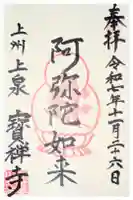 奉拝
令和七年十一月二十六日
阿弥陀如来
上州上泉
寶禅寺